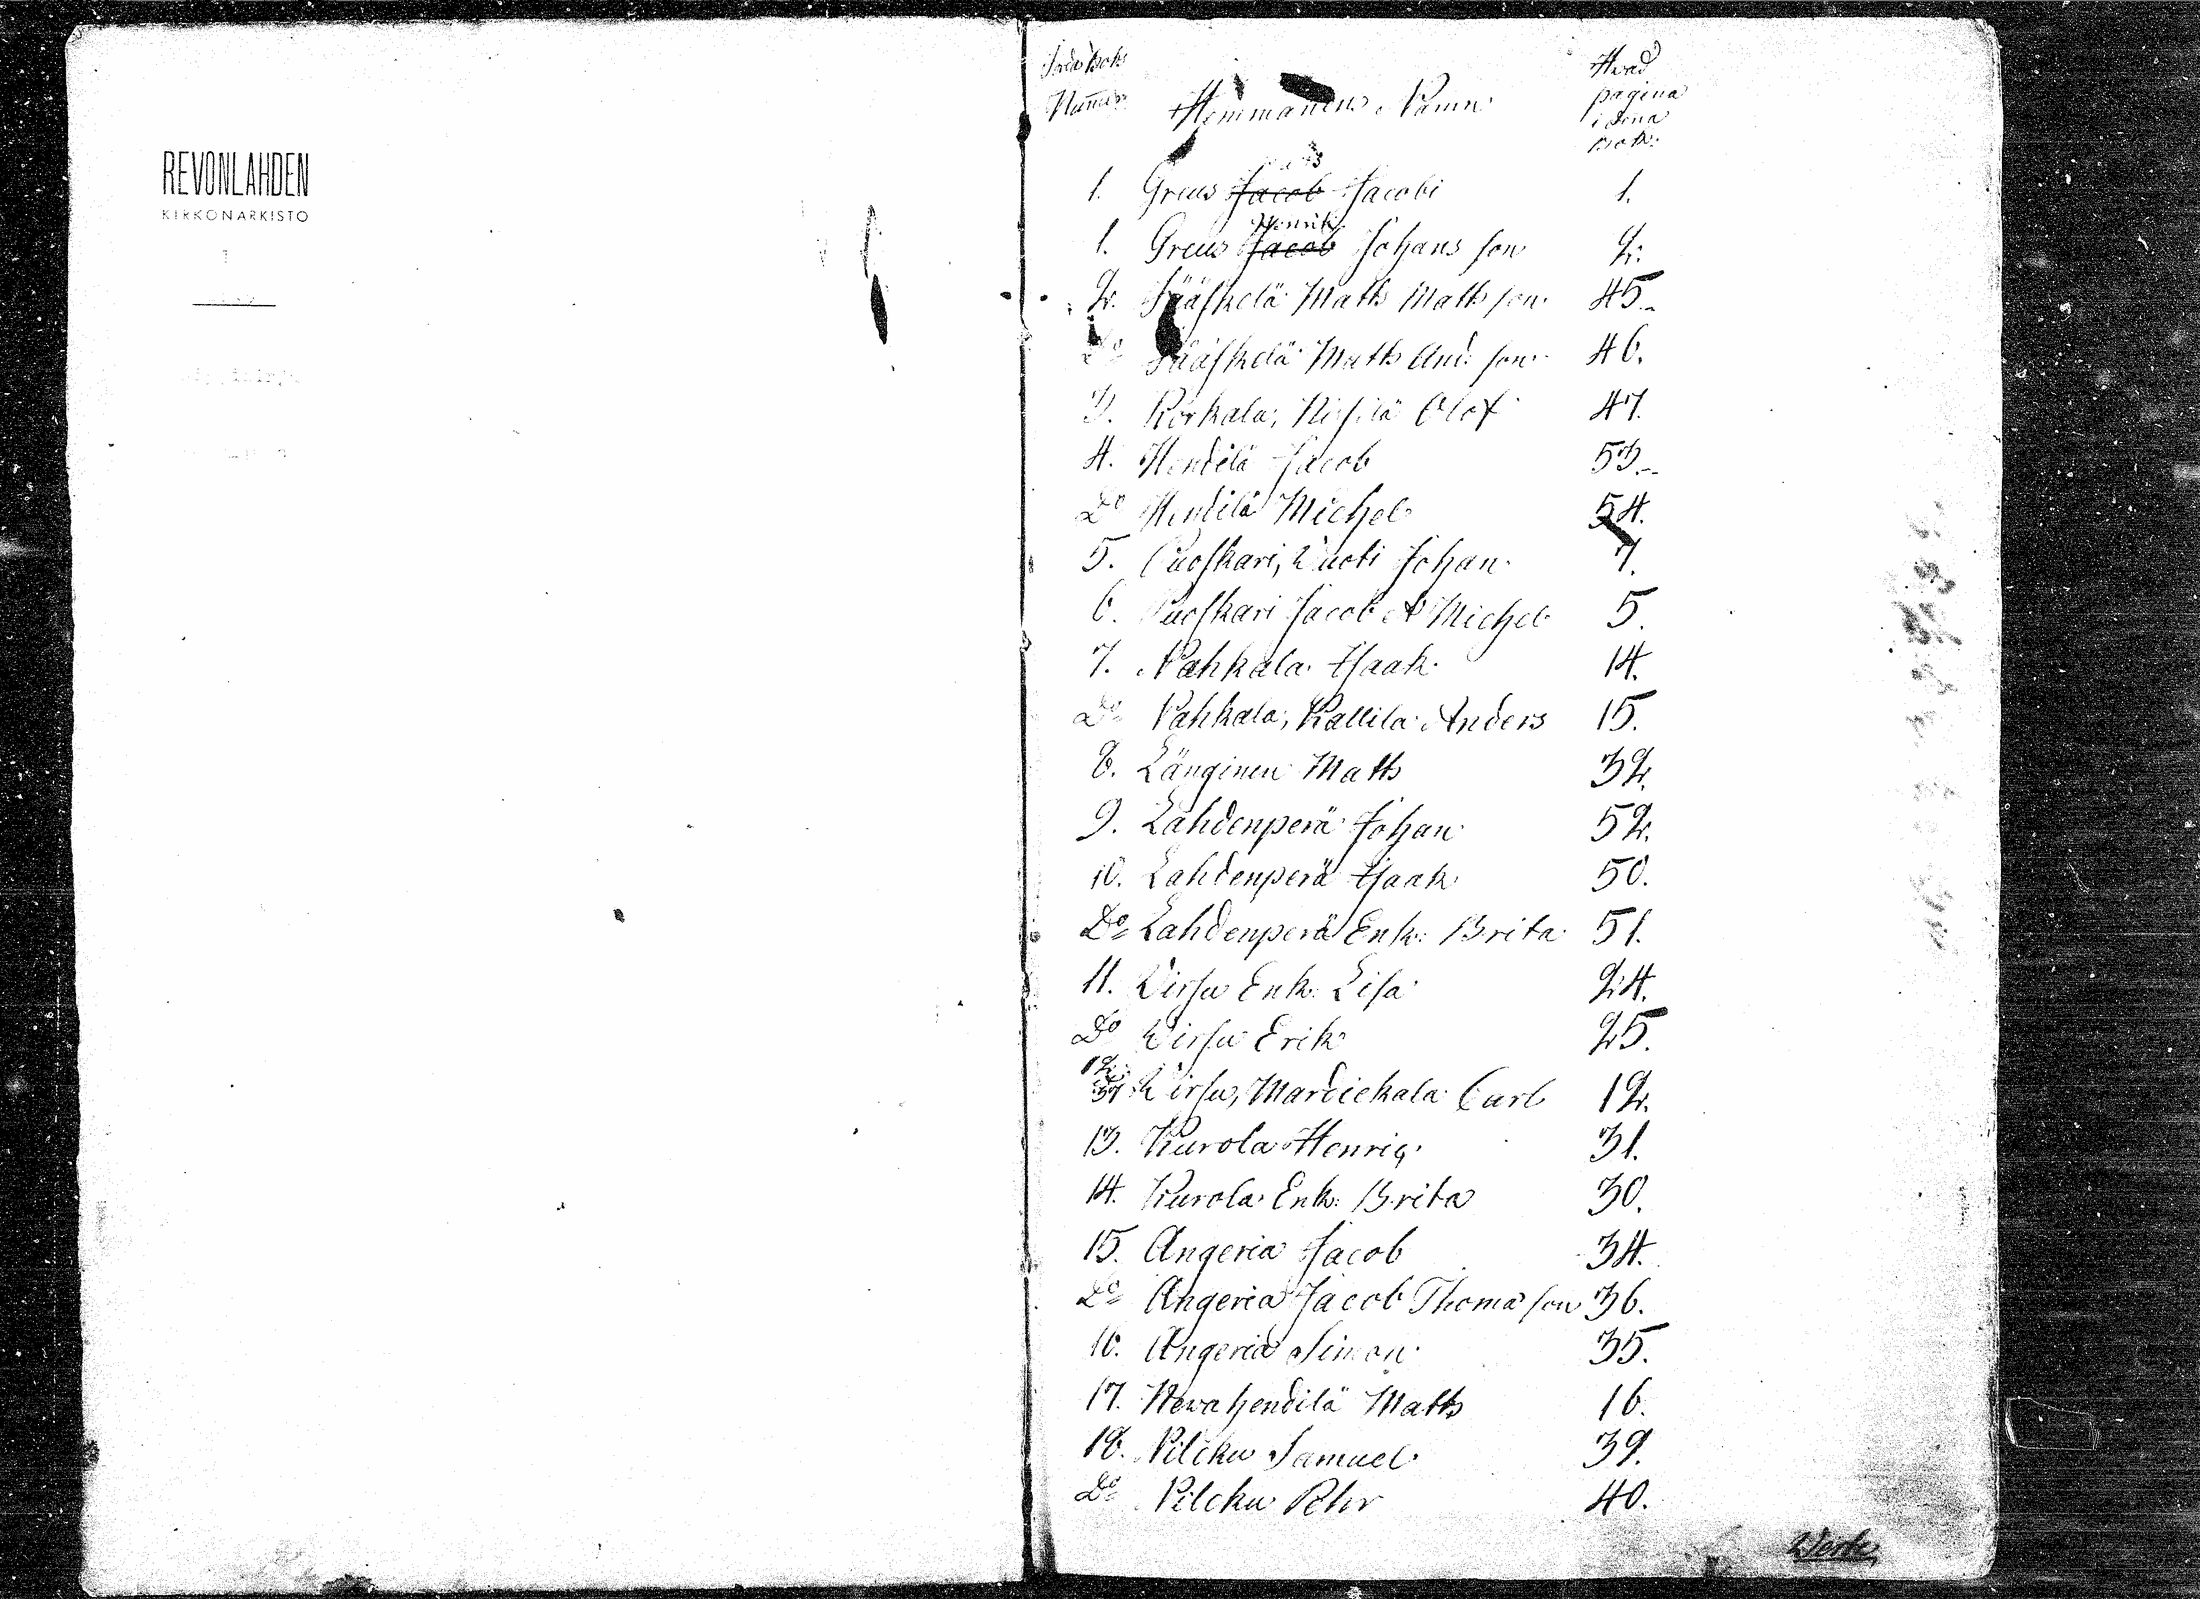 REVONLAHDEN
KIRKONARKISTO
Jorda boks Hwad
Numer. Hemmanens Namn pagina
i dena
bok:
1. Greus Jacob Jacobi 1.
Henrik
1. Greus Jacob Johans son 2.
2. Jääskelä Matts Matts son 45.
Do Jääskelä Matts And: son 46.
3. Korkala, Olof 47.
4. Hendilä Jacob 53.
Do Hendilä Michel 54.
5. Puoskari, Wuoti Johan 7.
6. Puoskari Jacob & Michel 5.
7. Pahkala Isaak 14.
Do Pahkala, Kallila Anders 15.
8. Länginen Matts 32.
9. Lahdenperä Johan 52.
10. Lahdenperä Isaak 50.
Do Lahdenperä Enk: Brita 51.
11. Wirsu Enk: Lisa 24.
Do Wirsu Erik 25.
12.
37 Wirsu, Mardickala Carl 12.
13. Kurola Henriq 31.
14. Kurola Enk: Brita 30.
15. Angeria Jacob 34.
Do Angeria Jacob Thoma son 36.
16. Angeria Simon 35.
17. Newahendilä Matts 16.
18. Pilcku Samuel 39.
Do Pilcku Pehr 40.